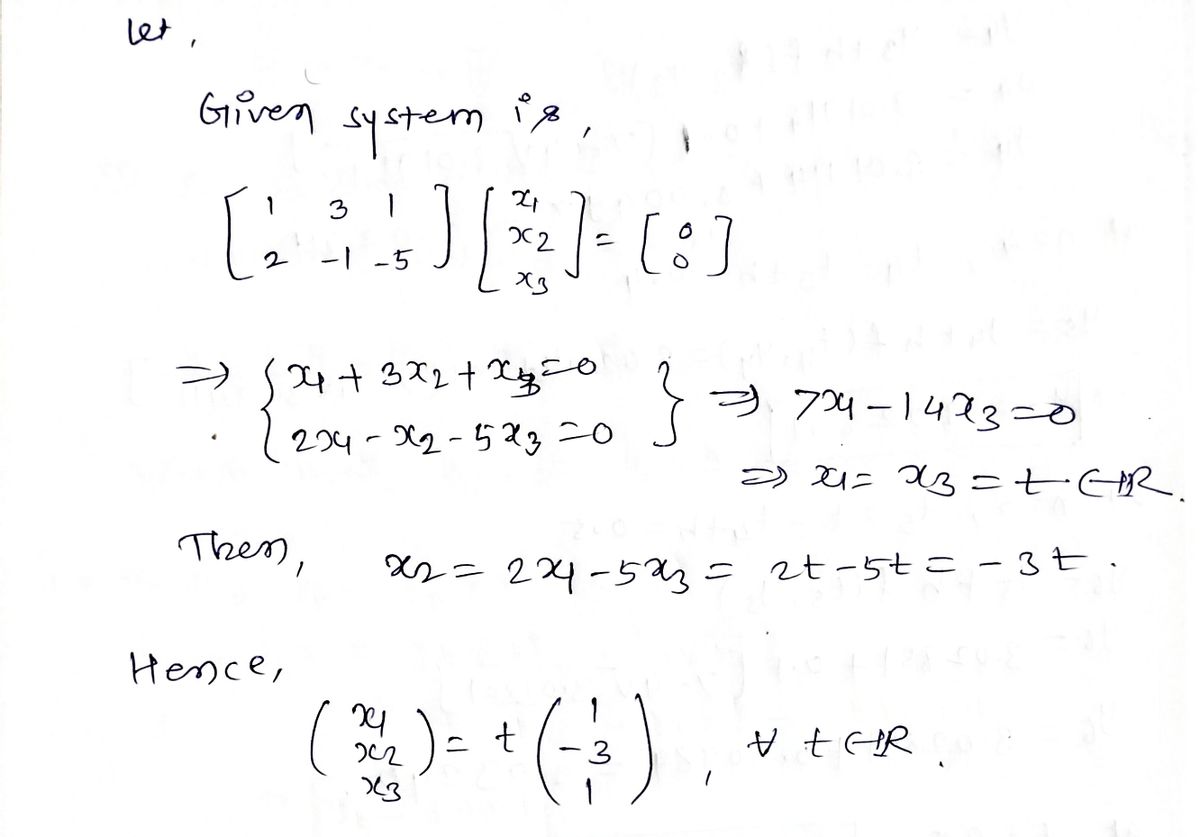 Let,
Given system is,
[1 3 1; 2 -1 -5] [x1; x2; x3] = [0; 0]
⇒ { x1 + 3x2 + x3 = 0
2x1 - x2 - 5x3 = 0 } ⇒ 7x1 - 14x3 = 0
⇒ x1 = x3 = t ∈ IR.
Then, x2 = 2x1 - 5x3 = 2t - 5t = -3t.
Hence,
(x1; x2; x3) = t (1; -3; 1), ∀ t ∈ IR.